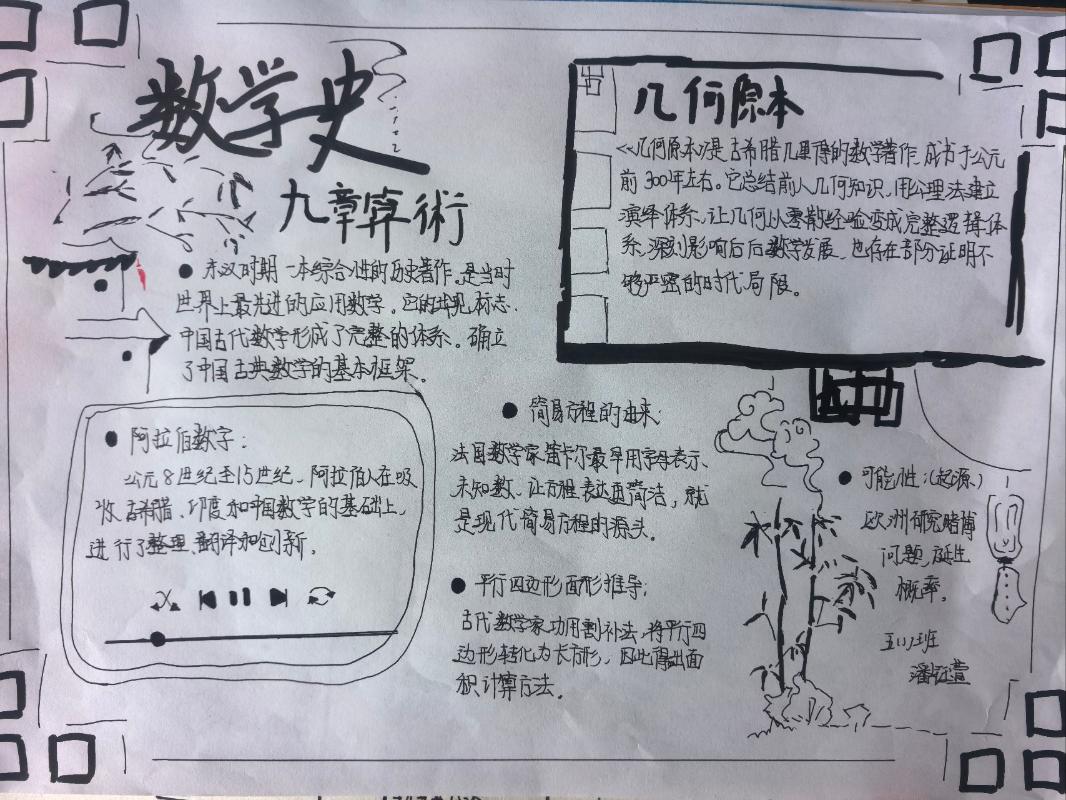 数学史
九章算術
东汉时期一本综合性的历史著作。是当时
世界上最先进的应用数学。它的出现标志
中国古代数学形成了完整的体系。确立
了中国古典数学的基本框架。
几何原本
《几何原本》是古希腊几里得的数学著作,成书于公元
前300年左右。它总结前人几何知识,用公理法建立
演绎体系,让几何从零散经验变成完整逻辑体
系,深刻影响后后数学发展,也存在部分证明不
够严密的时代局限。
阿拉伯数字:
公元8世纪至15世纪,阿拉伯人在吸
收古希腊、印度和中国数学的基础上,
进行了整理、翻译和创新。
简易方程的由来:
法国数学家笛卡尔最早用字母表示
未知数,让方程表达更简洁,就
是现代简易方程的源头。
平行四边形面形推导:
古代数学家功用割补法,将平行四
边形转化为长方形,因此得出面
积计算方法。
可能性:(起源)
欧洲研究赌博
问题,诞生
概率。
五(1)班
潘